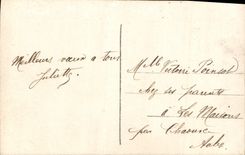 Meilleurs vœux a tous
Juliette.
Mlle Victorie Poinsot
chez ses parents
à Les Maisons
par Chaource
Aube